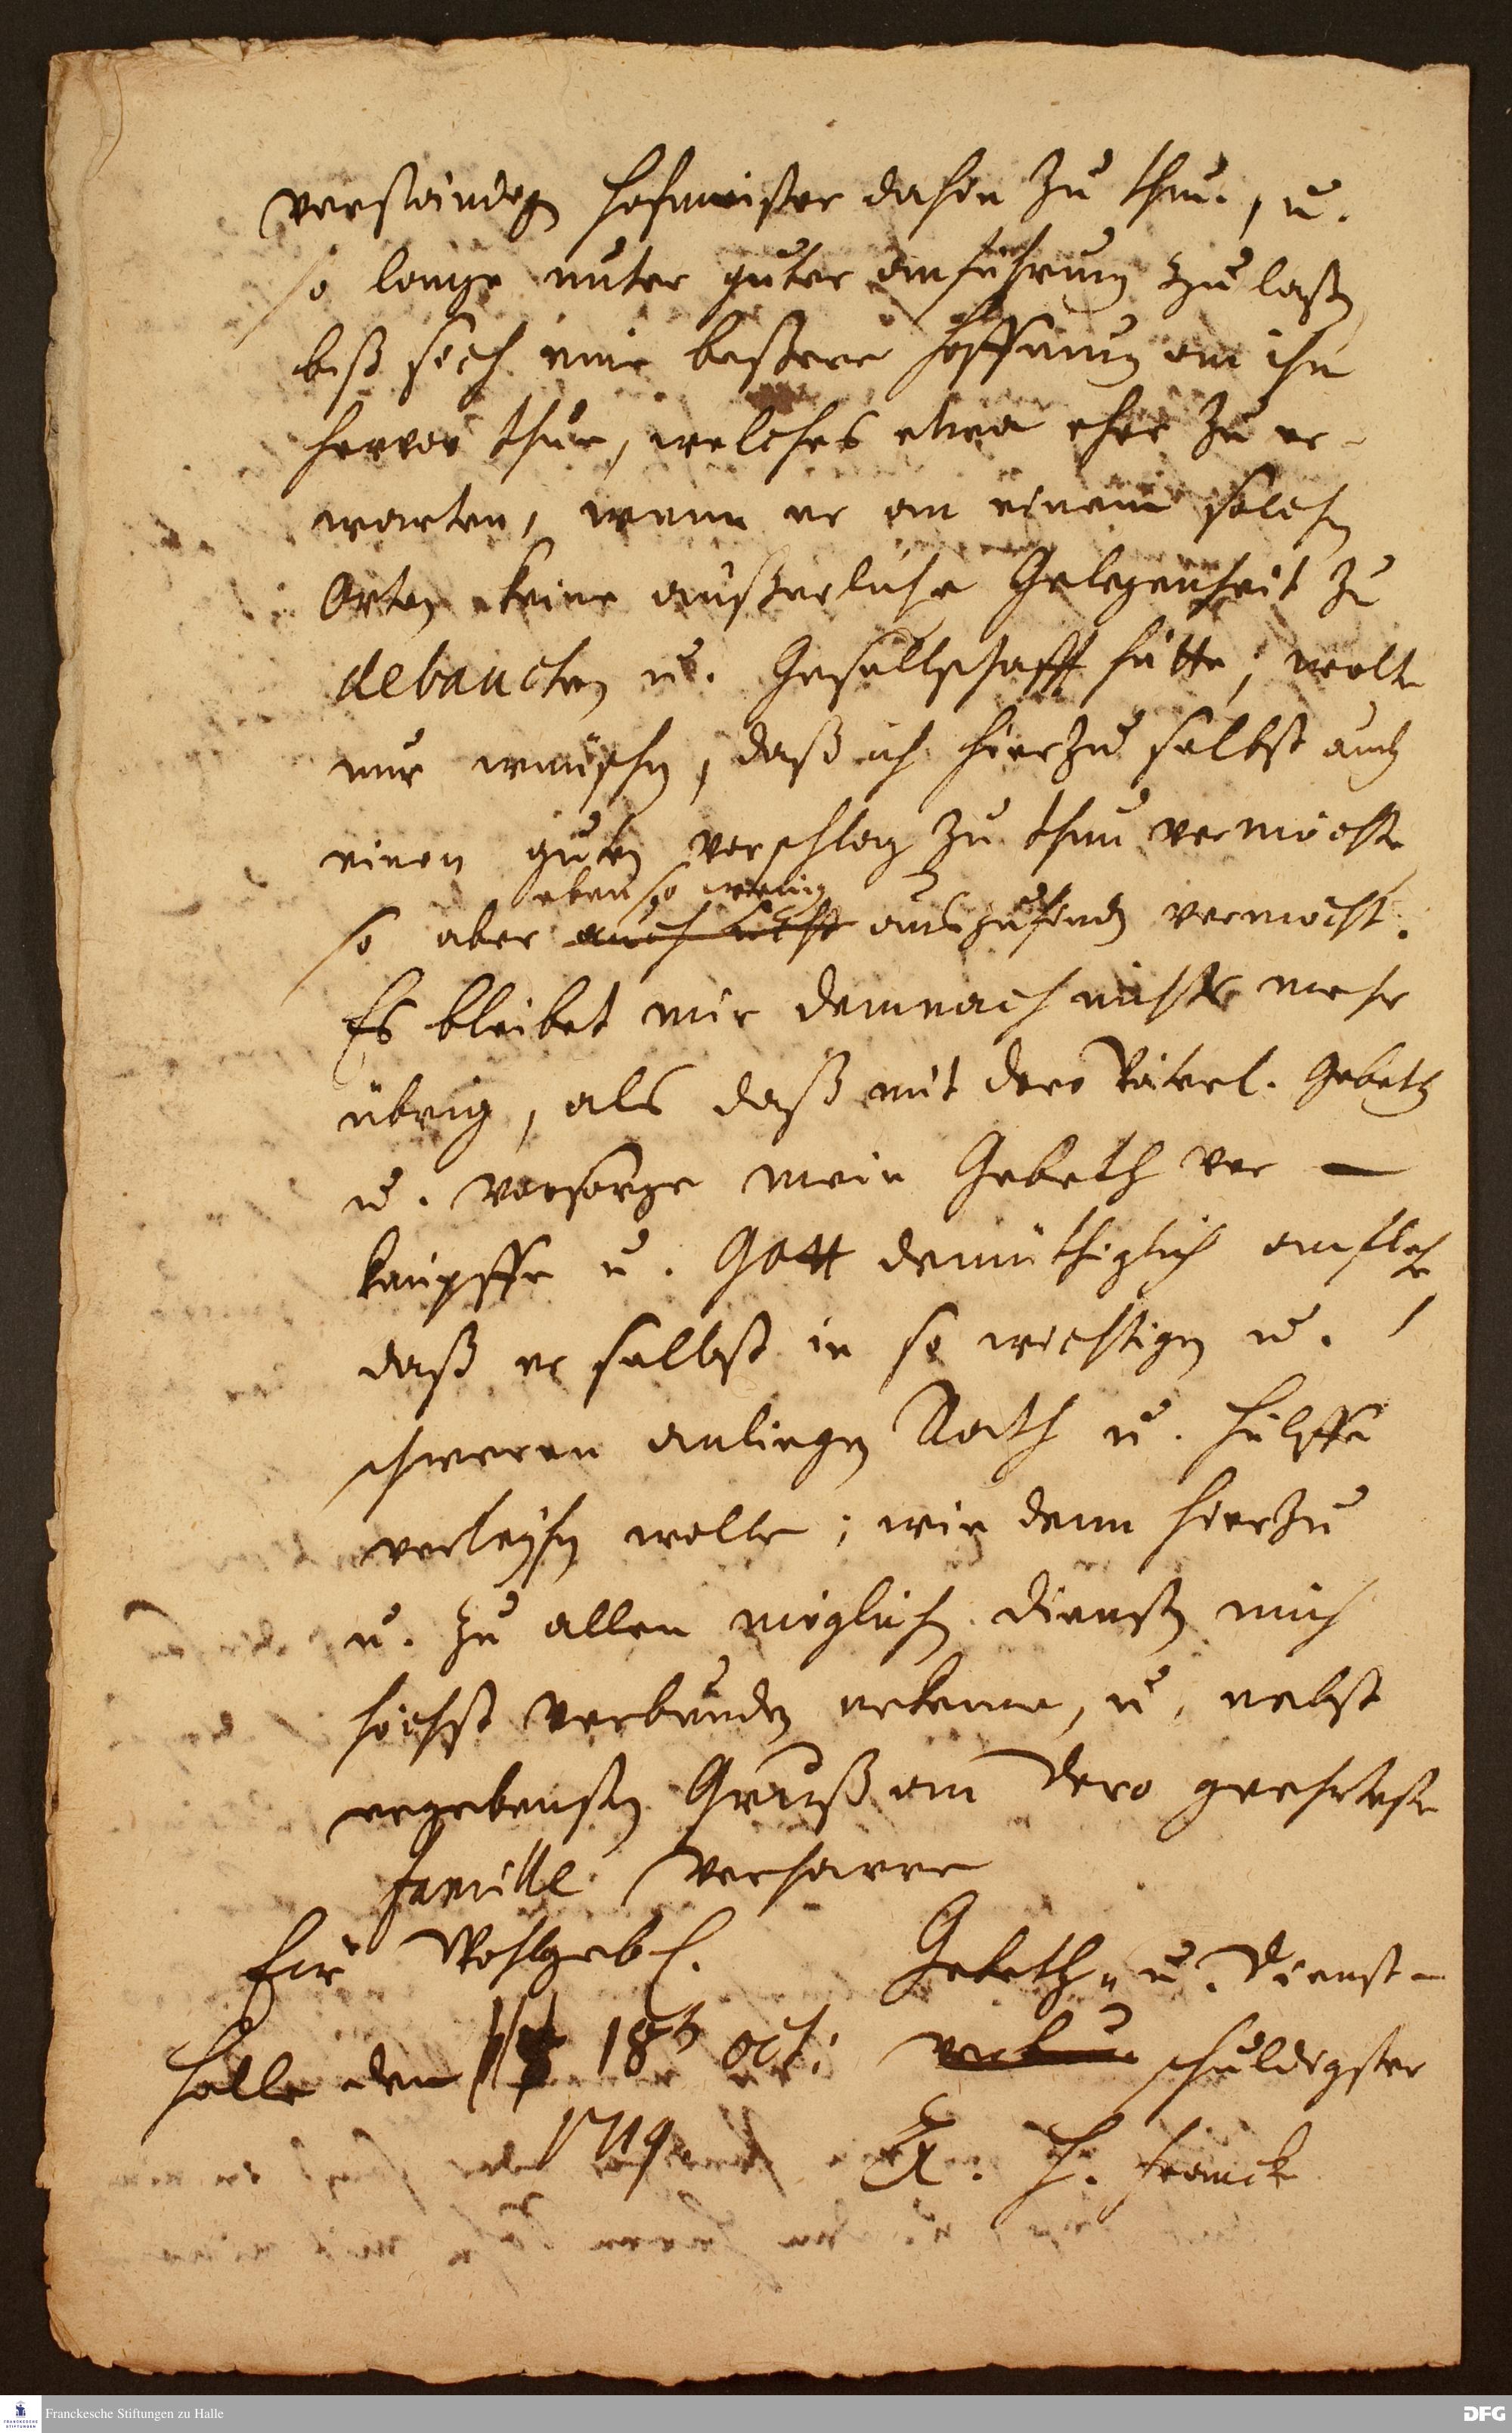 verständigen Hofmeister dahin zu thun, u.
so lange unter guter anführung zu laßen
biß sich eine beßere Hoffnung an ihn
hervor thue, welches etwa eher zu er-
warten, wenn er an einem solchen
Orten keine außerliche Gelegenheit zu
debauchen u. Gesellschafft hätte; wolte
nur wünschen, daß ich hierzu selbst auch
einen guten vorschlag zu thun vermöchte
eben so wenig
so aber auch nicht auszufinden vermocht.
Es bleibet mir demnach nichts mehr
übrig, als daß mit dero Väterl. Gebeth
u. vorsorge mein Gebeth ver-
knüpffe u. Gott demüthiglich anflehe,
daß er selbst in so wichtigen u.
schweren anliegen Rath u. Hülffe
verleyhen wolle; wie denn hierzu
u. zu allen möglichen diensten mich
höchst verbunden erkenne, u. nebst
ergebensten Gruß an Dero geehrteste
Famille verharre
Eur Wohlgeb.
Gebeth- u. Dienst-
Halle den 18 Oct:
schuldigster
1719
A. H. Franck
Franckesche Stiftungen zu Halle
DFG